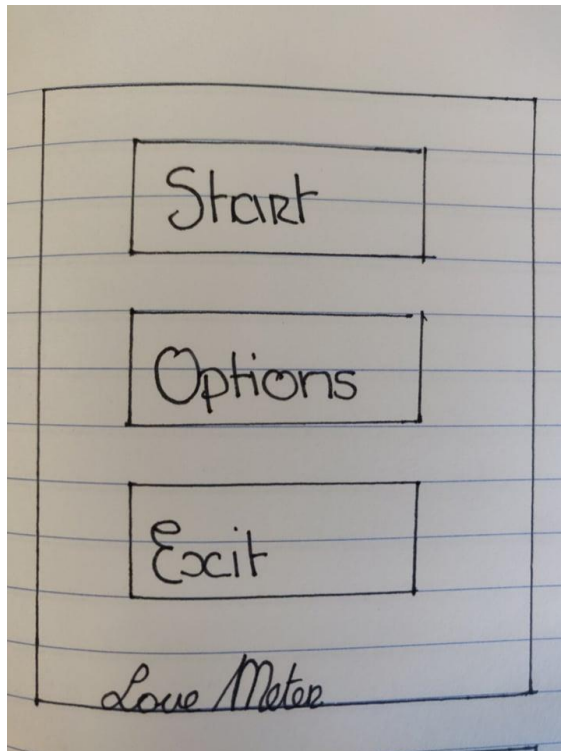 Start
Options
Exit
Love Meter